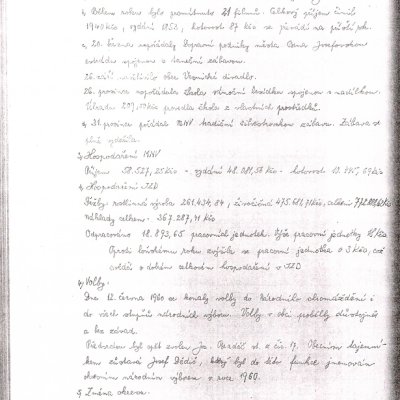 c, Během roku bylo promítnuto 21 filmů. Celkový příjem činil
1940 Kčs, vydání 1853, hotovost 87 Kčs se převádí na příští rok.
d, 20. března uspořádaly Dopravní podniky města Brna Josefovskou
besedu spojenou s taneční zábavou.
26. září neděle obec Vesnické divadlo.
26. prosince uspořádala škola vánoční besídku spojenou s nadílkou.
Úhradu 207,00 Kčs provedla škola z vlastních prostředků.
e, 31. prosince pořádal MNV tradiční silvestrovskou zábavu. Zábava se
plně vydařila.
3, Hospodaření MNV
Příjem 58.527,25 Kčs - vydání 48.081,56 Kčs - hotovost 10.445,69 Kčs
4, Hospodaření JZD
Tržby rostlinná výroba 261.434,84, živočišná 475.681, Kčs, celkem
Náklady celkem - 367.287,41 Kčs
Odpracováno 18.893,65 pracovních jednotek. Výše pracovní jednotky Kčs
Oproti loňskému roku zvýšila se pracovní jednotka o 3 Kčs, což
svědčí o dobrém celkovém hospodaření v JZD
5, Volby.
Dne 12. června 1960 se konaly volby do Národního shromáždění i
do všech stupňů národních výborů. Volby v obci proběhly důstojně
a bez závad.
Předsedou byl opět zvolen Jos. st. z čís. 17. Obecním tajemní-
kem zůstává Josef Dědič, který byl do této funkce jmenován
okresním národním výborem v roce 1960.
6, Změna okresu.